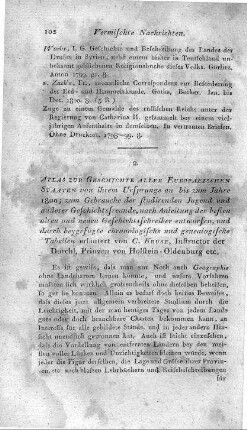 102 Vermischte Nachrichten.
Worbs, I. G. Geschichte und Beschreibung des Landes der
Drusen in Syrien, nebst einem bisher in Teutschland un-
bekannt gebliebenen Religionsbuche dieses Volks. Görlitz,
Anton 1799. gr. 8.
v. Zach's, Fr., monatliche Correspondenz zur Beförderung
der Erd- und Himmelskunde. Gotha, Becker. Jan. bis
Dec. 1800. 8.
Züge zu einem Gemälde des russischen Reichs unter der
Regierung von Catharina II. gesammelt bey einem viel-
jährigen Aufenthalte in demselben. In vertrauten Briefen.
Ohne Druckort, 8.
2.
ATLAS ZUR GESCHICHTE ALLER EUROPÄISCHEN
STAATEN von ihrem Ursprunge an bis zum Jahre
1800; zum Gebrauche der studirenden Jugend und
anderer Geschichtsfreunde, nach Anleitung der besten
alten und neuen Geschichtschreiber entworfen, und
durch beygefügte chronologische und genealogische
Tabellen erläutert von C. KRUSE, Instructor der
Durchl. Prinzen von Hollstein-Oldenburg etc.
Es ist gewiss, dass man zur Noth auch Geographie
ohne Landcharten lernen könnte, und unsere Vorfahren
mussten sich ohne
so gar Allein es bedarf doch keines Beweises,
dass dieses jetzt allgemein verbreitete Studium durch die
Leichtigkeit, mit der man heutiges Tages von jedem Lande
gute oder doch brauchbare Charten bekommen kann, an
Interesse für alle gebildete Stände, und in jederley Hin-
sicht unendlich gewonnen hat. Auch ist leicht einzusehen,
dass die Vorstellung von entfernten Ländern bey den mei-
sten voller Lücken und Unrichtigkeiten bleiben würde, wenn
jeder die Figur derselben, die Lage und Grösse ihrer Provin-
zen etc. nach Lehrbüchern und Reisebeschreibungen
für